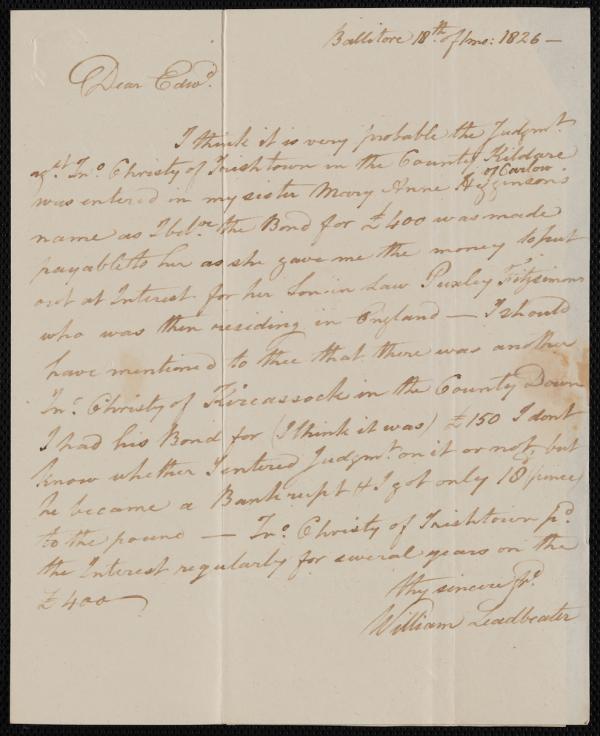 Ballitore 18th of 1mo: 1826 —
Dear Edwd.
I think it is very probable the Judgmt.
agst Jno. Christy of Irishtown in the County Kildare
of Carlow
was entered in my sister Mary Anne Higginson's
name as I belve. the Bond for £400 was made
payable to her as she gave me the money to put
out at Interest for her Son in Law Puxley Fitzsimons
who was then residing in England — I should
have mentioned to thee that there was another
Jno. Christy of Kircassock in the County Down
I had his Bond for (I think it was) £150 I dont
know whether I entered Judgmt. on it or not, but
he became a Bankrupt & I got only 18 (pence)
to the pound — Jno. Christy of Irishtown pd.
the Interest regularly for several years on the
£400 —
thy sincere frd.
William Leadbeater